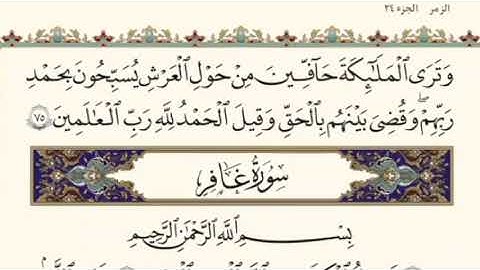 الزمر الجزء ٢٤
وَتَرَى ٱلْمَلَـٰٓئِكَةَ حَآفِّينَ مِنْ حَوْلِ ٱلْعَرْشِ يُسَبِّحُونَ بِحَمْدِ
رَبِّهِمْ ۖ وَقُضِىَ بَيْنَهُم بِٱلْحَقِّ وَقِيلَ ٱلْحَمْدُ لِلَّهِ رَبِّ ٱلْعَـٰلَمِينَ ٧٥
سُورَةُ غَافِرٍ
بِسْمِ ٱللَّهِ ٱلرَّحْمَـٰنِ ٱلرَّحِيمِ